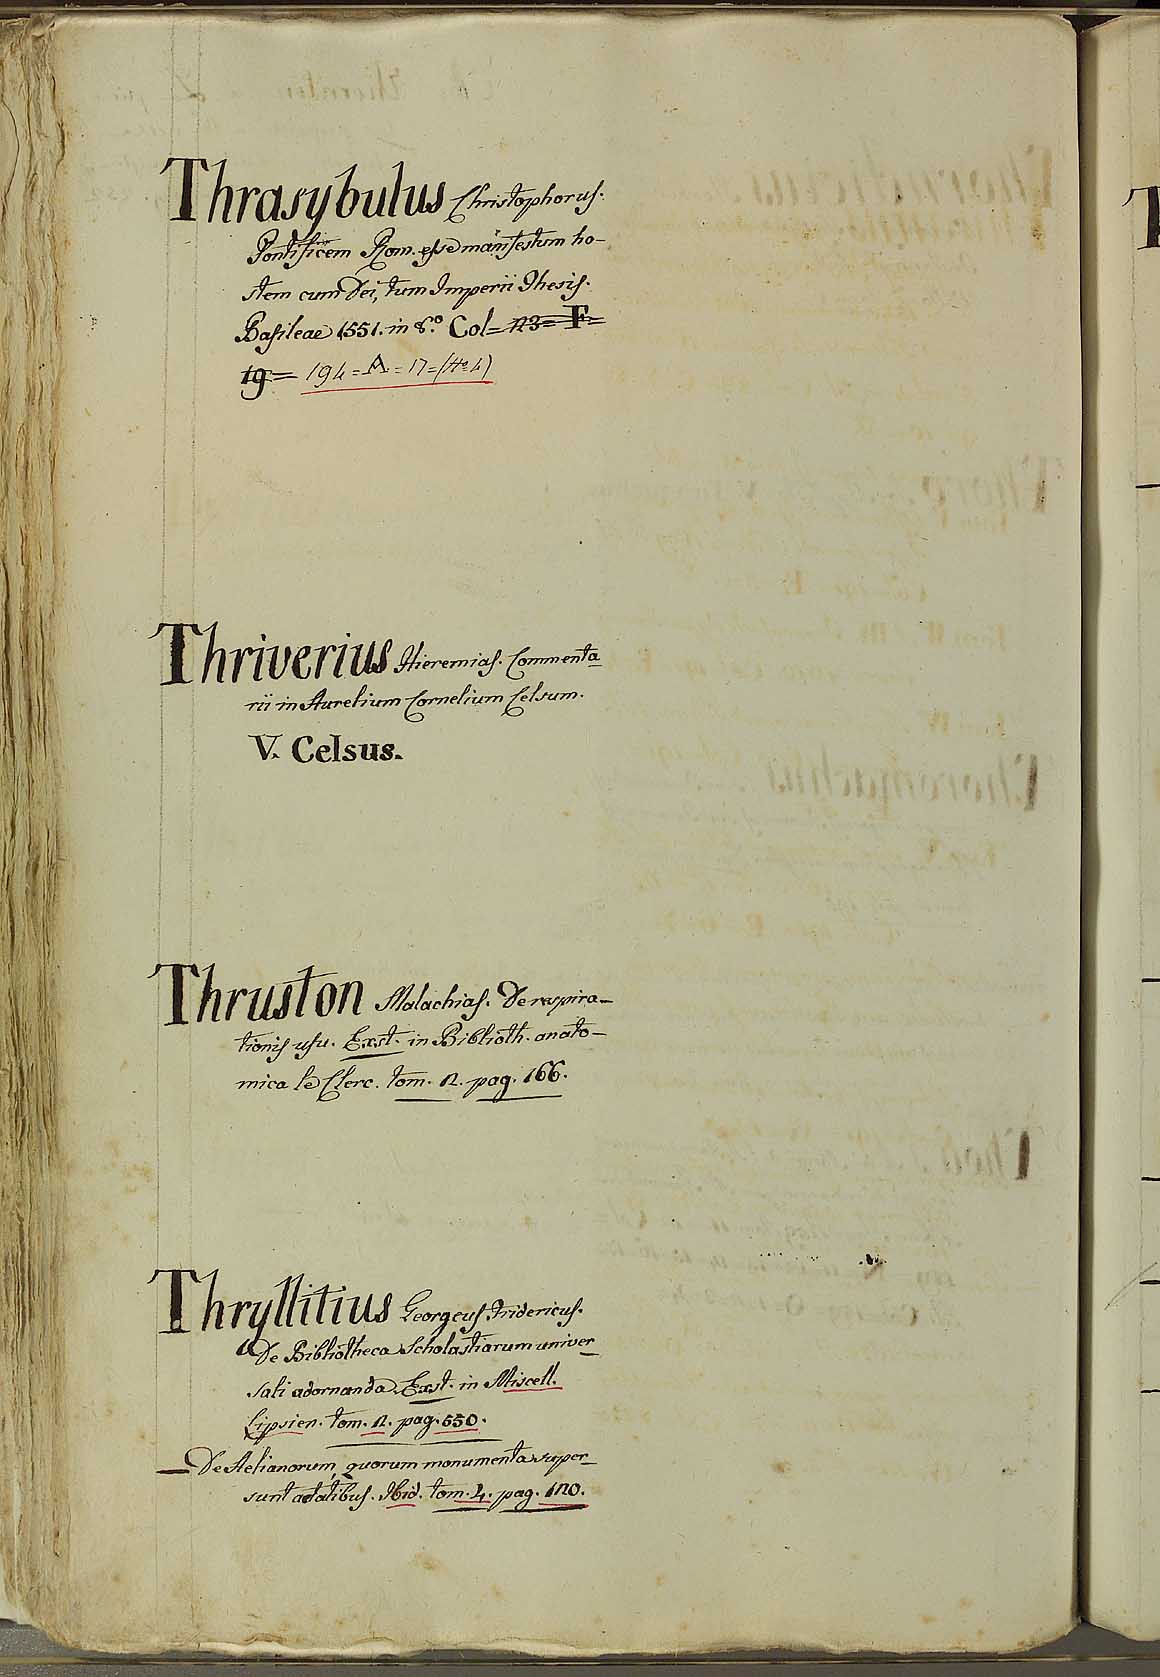 Thrasybulus Christophorus.
Pontificem Rom. esse manifestum ho-
stem cum Dei, tum Imperii Thesis.
Basileae 1551. in 8.° Col= 123= F=
19= 194=A=17=(N°4)
Thriverius Hieremias. Commenta
rii in Aurelium Cornelium Celsum.
V. Celsus.
Thruston Malachias. De respira-
tionis usu. Exst. in Biblioth. anato-
mica le Clerc. tom. 2. pag. 166.
Thryllitius Georgeus Fridericus.
De Bibliotheca Scholastiarum univer
sali adornanda. Exst. in Miscell.
Lipsien. tom. 2. pag. 550.
— De Aelianorum, quorum monumenta super
sunt aetatibus. Ibid. tom. 4. pag. 120.